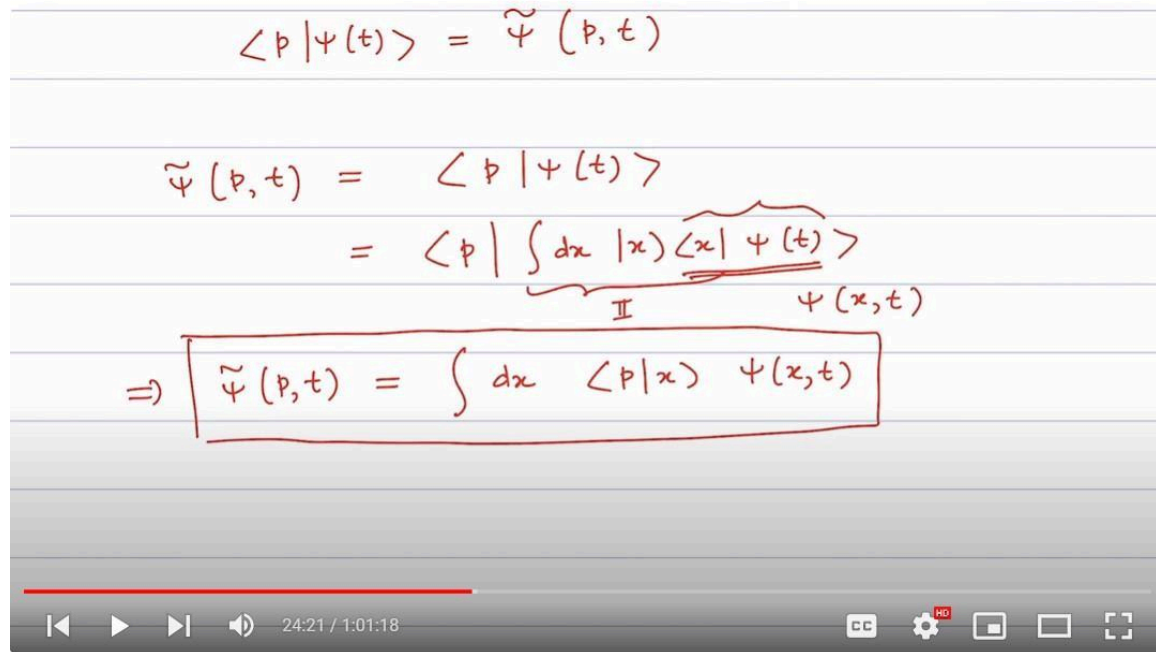 <p|ψ(t)> = ψ̃ (p,t)
ψ̃ (p,t) = <p|ψ(t)>
= <p| ∫ dx |x><x| ψ(t)>
𝕀 ψ(x,t)
⇒ ψ̃ (p,t) = ∫ dx <p|x> ψ(x,t)
24:21 / 1:01:18 CC HD